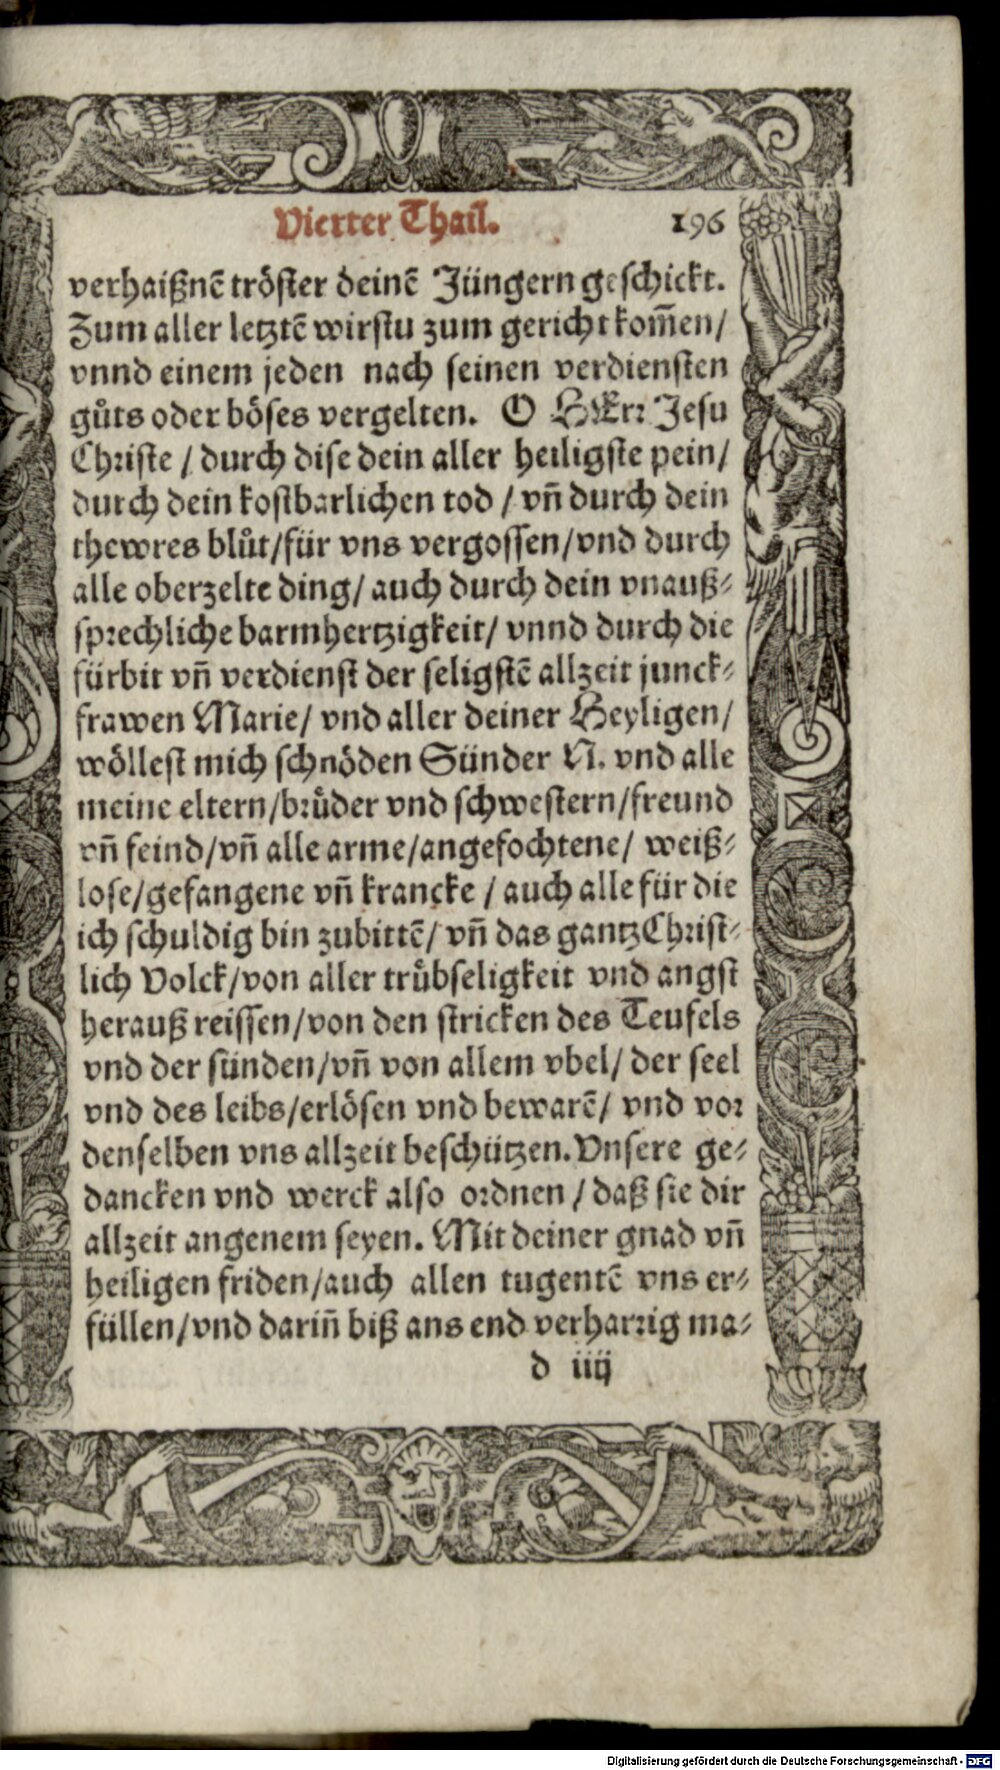 Vierter Thail. 196
verhaißnẽ tröster deinẽ Jüngern geschickt.
Zum aller letztẽ wirstu zum gericht kom̃en/
vnnd einem jeden nach seinen verdiensten
gůts oder böses vergelten. O HErr Jesu
Christe / durch dise dein aller heiligste pein/
durch dein kostbarlichen tod / vñ durch dein
thewres blůt/für vns vergossen/vnd durch
alle oberzelte ding/ auch durch dein vnauß⸗
sprechliche barmhertzigkeit/ vnnd durch die
fürbit vñ verdienst der seligstẽ allzeit junck⸗
frawen Marie/ vnd aller deiner Heyligen/
wöllest mich schnöden Sünder N. vnd alle
meine eltern/brüder vnd schwestern/freund
vñ feind/vñ alle arme/angefochtene/ weiß⸗
lose/gefangene vñ krancke / auch alle für die
ich schuldig bin zubittẽ/ vñ das gantz Christ⸗
lich Volck/von aller trübseligkeit vnd angst
herauß reissen/von den stricken des Teufels
vnd der sünden/vñ von allem vbel/ der seel
vnd des leibs/erlösen vnd bewarẽ/ vnd vor
denselben vns allzeit beschützen. Vnsere ge⸗
dancken vnd werck also ordnen / daß sie dir
allzeit angenem seyen. Mit deiner gnad vñ
heiligen friden/auch allen tugentẽ vns er⸗
füllen/vnd dariñ biß ans end verharrig ma⸗
d iiij
Digitalisierung gefördert durch die Deutsche Forschungsgemeinschaft - DFG